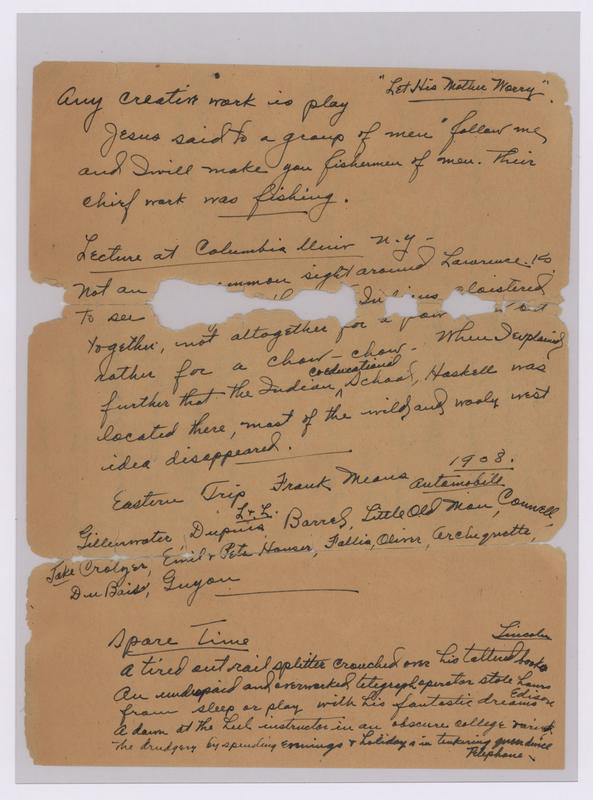 "Let His Mother Worry".
Any creative work is play
Jesus said to a group of men "follow me,
and I will make you fishermen of men. Their
chief work was fishing.
Lecture at Columbia Univ N.Y.-
Not an mmon sight around Lawrence. Ks
To see Indians cloistered
together, not altogether for a pow but
rather for a chow-chow. When I explained
further that the Indian coeducational School, Haskell was
located there, most of the wild and wooly west
idea disappeared.
1903.
Eastern Trip Frank Means Automobile
L & L.
Gillenwater, Dupuis Barrel, Little Old Man, Connell,
Jake Crolzer, Emil & Pete Hauser, Fallis, Oliver, Archequette
Du Bois, Guyon
Spare Time Lincoln
A tired out rail splitter crouched over his tattered books
An underpaid and overworked telegraph operator stole hours
from sleep or play with his fantastic dreams Edison
A down at the heel instructor in an obscure college
the drudgery by spending evenings & holidays in tinkering
Telephone